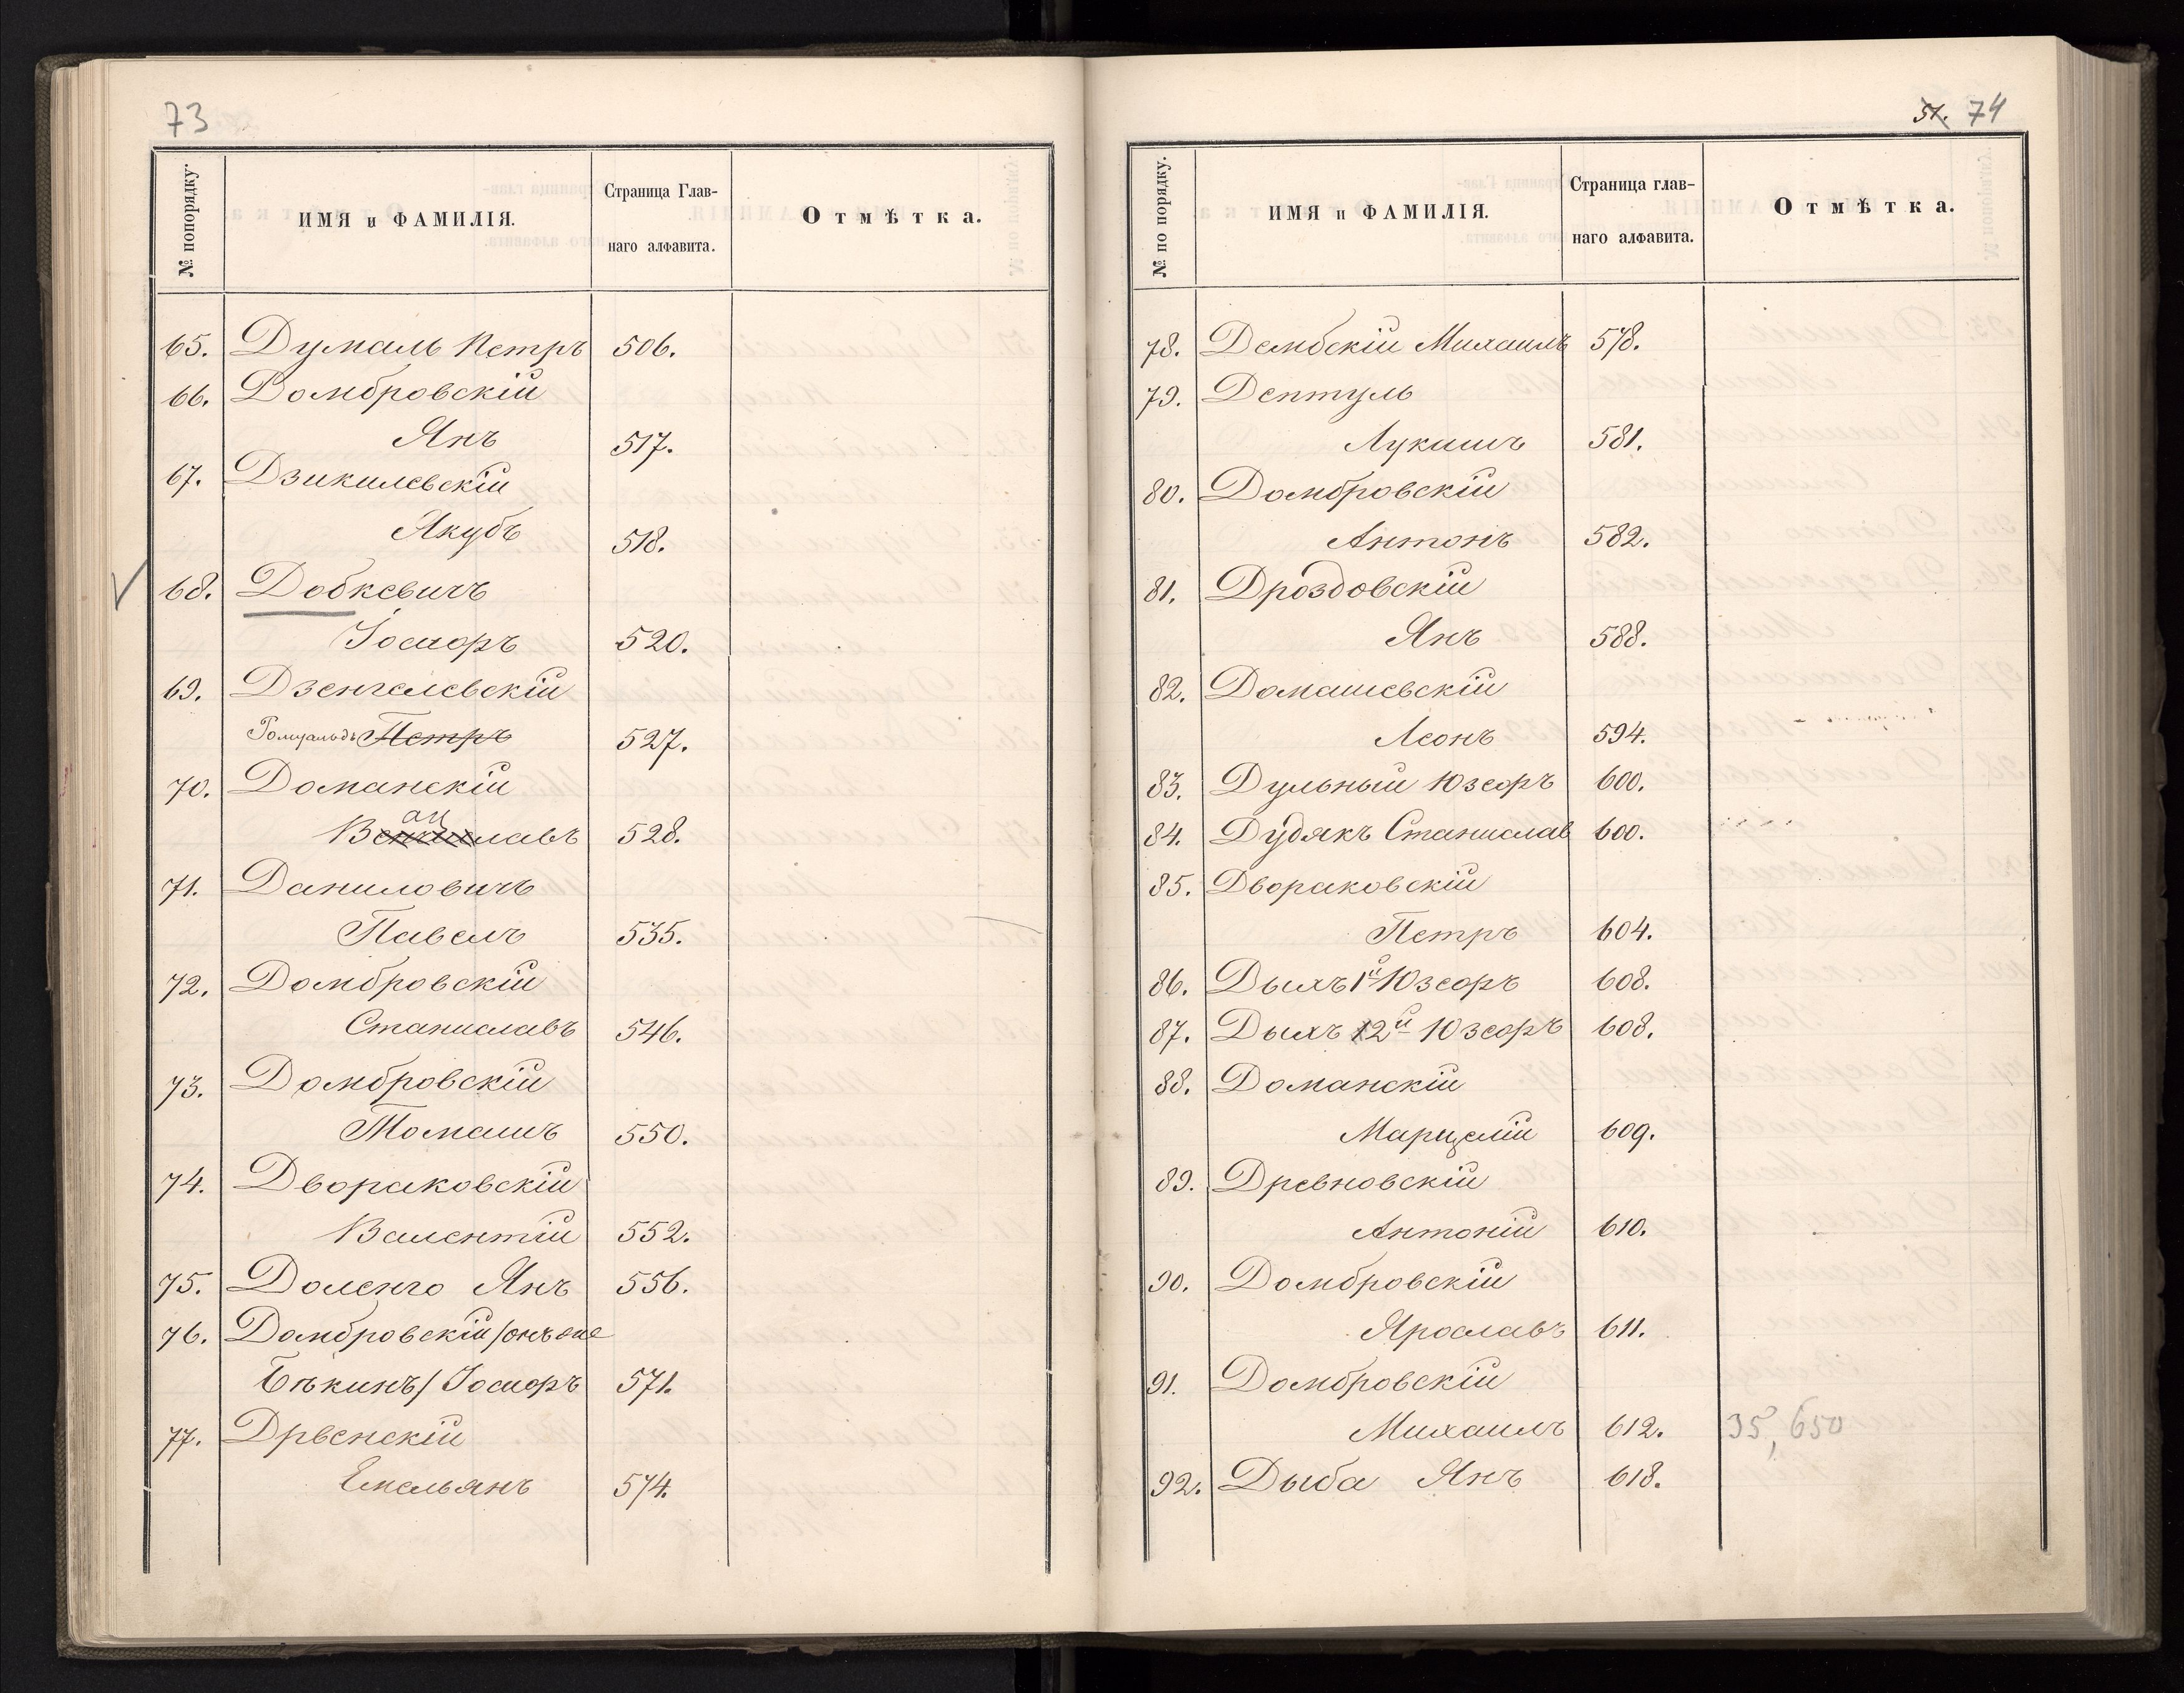 73
№ попорядку.
ИМЯ и ФАМИЛІЯ.
Страница Глав-
наго алфавита.
Отмѣтка.
65. Думаль Петръ 506.
66. Домбровскій
Янъ 517.
67. Дзикилевскій
Якубъ 518.
68. Добкевичъ
Іосифъ 520.
69. Дзенгелевскій
Ромуальдъ Петръ 527.
70. Доманскій
ац
Венцеславъ 528.
71. Даниловичъ
Павелъ 535.
72. Домбровскій
Станиславъ 546.
73. Домбровскій
Томашъ 550.
74. Двораковскій
Валентій 552.
75. Доленго Янъ 556.
76. Домбровскій /онъ же
Бѣкинъ/ Іосифъ 571.
77. Дрвенскій
Емельянъ 574.
51. 74
№ по порядку.
ИМЯ и ФАМИЛІЯ.
Страница глав-
наго алфавита.
Отмѣтка.
78. Дембскій Михаилъ 578.
79. Дептуль
Лукашъ 581.
80. Домбровскій
Антонъ 582.
81. Дроздовскій
Янъ 588.
82. Домашевскій
Леонъ 594.
83. Дульный Юзефъ 600.
84. Дудякъ Станислав 600.
85. Двораковскій
Петръ 604.
86. Дыхъ 1й Юзефъ 608.
87. Дыхъ 2й Юзефъ 608.
88. Доманскій
Марцелій 609.
89. Древновскій
Антоній 610.
90. Домбровскій
Ярославъ 611.
91. Домбровскій
Михаилъ 612. 35, 650
92. Дыба Янъ 618.